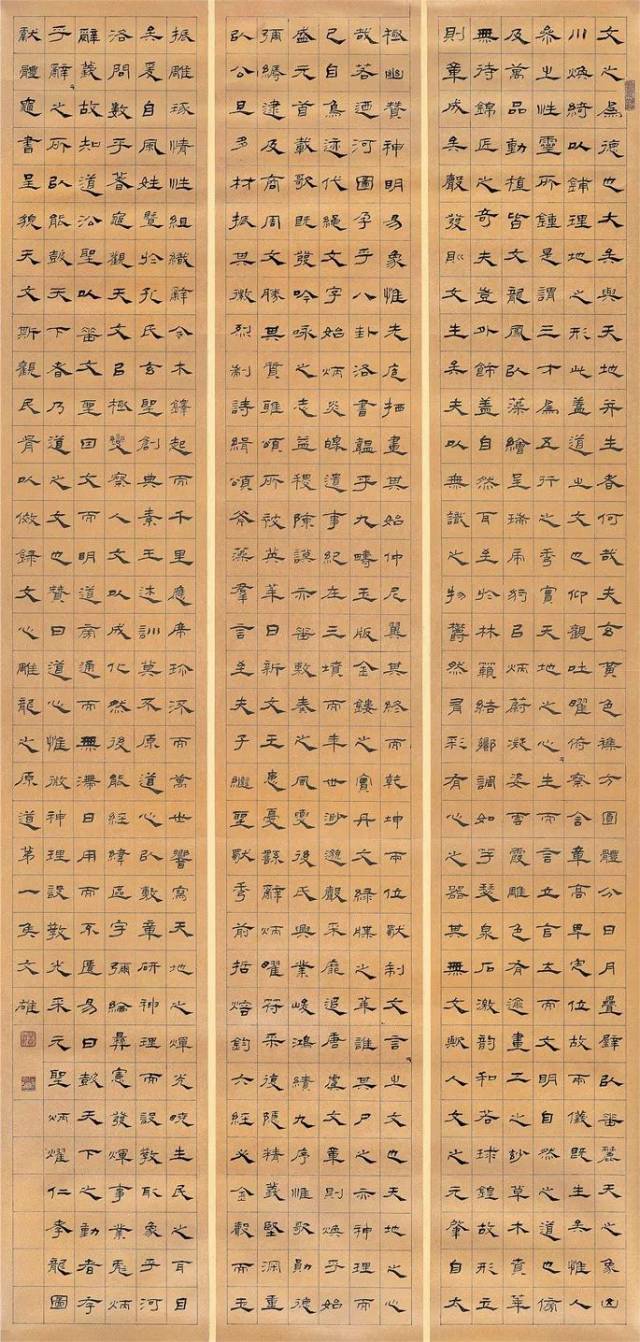 文之為德也大矣與天地并生者何哉夫玄黃色襍方圓體分日月疊壁以垂麗天之象山
川煥綺以鋪理地之形此蓋道之文也仰觀吐曜俯察含章高卑定位故兩儀既生矣惟人
參之性靈所鍾是謂三才為五行之秀實天地之心生而言立言立而文明自然之道也傍
及萬品動植皆文龍鳳以藻繪呈瑞虎豹以炳蔚凝姿雲霞雕色有逾畫工之妙草木賁華
無待錦匠之奇夫豈外飾蓋自然耳至於林籟結響調如竽瑟泉石激韻和若球鍠故形立
則章成矣聲發則文生矣夫以無識之物鬱然有彩有心之器其無文歟人文之元肇自太
極幽贊神明易象惟先庖犧畫其始仲尼翼其終而乾坤兩位獨制文言之文也天地之心
哉若迺河圖孕乎八卦洛書韞乎九疇玉版金鏤之實丹文綠牒之華誰其尸之亦神理而
已自鳥迹代繩文字始炳炎皞遺事紀在三墳而年世渺邈聲采靡追唐虞文章則煥乎始
盛元首載歌既發吟咏之志益稷陳謨亦垂敷奏之風夏後氏興業峻鴻績九序惟歌勳德
彌縟逮及商周文勝其質雅頌所被英華日新文王患憂繇辭炳曜符采復隱精義堅深重
以公旦多材振其徽烈制詩緝頌斧藻羣言至夫子繼聖獨秀前哲熔鈞六經必金聲而玉
振雕琢情性組織辭令木鐸起而千里應席珍流而萬世響寫天地之輝光曉生民之耳目
矣爰自風姓暨於孔氏玄聖創典素王述訓莫不原道心以敷章研神理而設教取象乎河
洛問數乎蓍龜觀天文以極變察人文以成化然後能經緯區宇彌綸彝憲發輝事業彪炳
辭義故知道沿聖以垂文聖因文而明道旁通而無滯日用而不匱易曰鼓天下之動者存
乎辭之所以能鼓天下者乃道之文也贊曰道心惟微神理設教光采元聖炳燿仁孝龍圖
獻體龜書呈貌天文斯觀民胥以傚錄文心雕龍之原道第一文雄